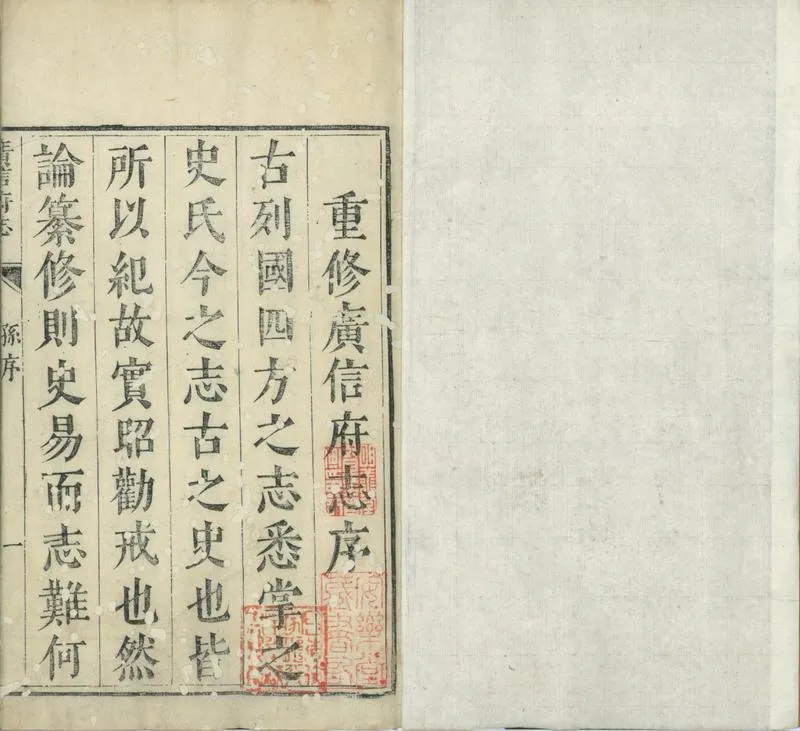 重修廣信府志序
古列國四方之志悉掌之
史氏今之志古之史也皆
所以紀故實昭勸戒也然
論纂修則史易而志難何
廣信府志 孫序 一